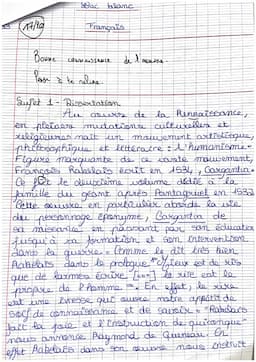 Bac blanc
Français
17/20
Bonne connaissance de l'œuvre.
Pense à te relire.
Sujet 1 - Dissertation
Au cours de la Renaissance,
en pleines mutations culturelles et
religieuses nait un mouvement artistique,
philosophique et littéraire : l'humanisme.
Figure marquante de ce vaste mouvement,
François Rabelais écrit en 1534, Gargantua.
Ce fût le deuxième volume dédié à la
famille du géant après Pantagruel en 1532
Cette œuvre en particulier aborde la vie
du personnage éponyme, Gargantua de
sa naissance en passant par son éducation
jusqu'à sa formation et son intervention
dans la guerre. Comme le dit très bien
Rabelais dans le prologue "Mieux est de ris
que de larmes écrire [...] le rire est le
propre de l'homme". En effet, le rire
est une ivresse qui ouvre notre appétit de
soif de connaissance et de savoir. "Rabelais
fait la joie et l'instruction de quiconque"
nous annonce Raymond de Queneau. En
effet Rabelais dans son œuvre nous instruit